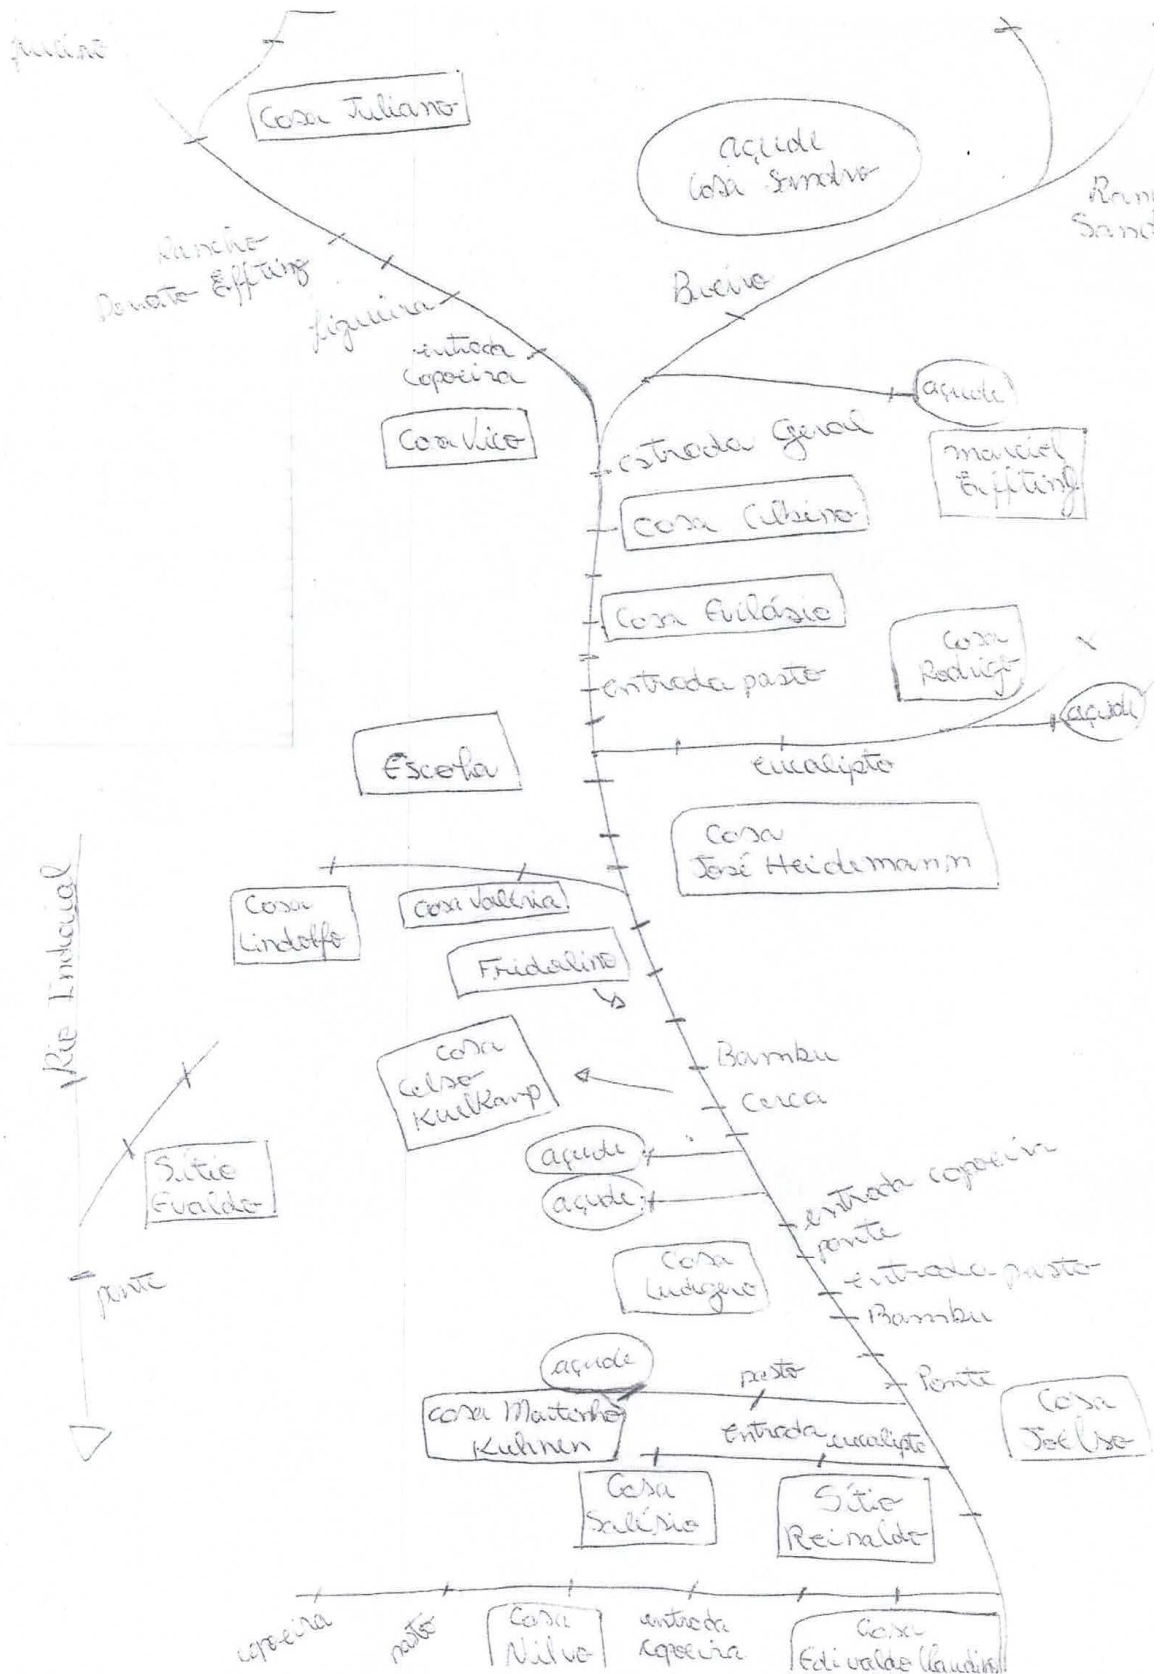 Casa Juliano
açude
Casa Sandro
Rancho
Donato Effting
figueira
Bueiro
entrada
Capoeira
açude
Casa Vico
estrada Geral
Marciel
Effting
Casa Albino
Casa Evilásio
Casa
Rodrigo
entrada pasto
açude
Escola
eucalipto
Casa
José Heidemann
Rio Indaial
Casa
Lindolfo
Casa Valéria
Fridolino
Casa
Celso
Kuelkamp
Bambu
Cerca
açude
Sítio
Evaldo
açude
entrada capoeira
ponte
Casa
Ludgero
entrada pasto
ponte
Bambu
açude
pasto
Ponte
Casa
Joelso
Casa Martinho
Kuhnen
Entrada eucalipto
Casa
Salésio
Sítio
Reinaldo
capoeira
pasto
Casa
Nilvo
entrada
capoeira
Casa
Edivaldo Claudino